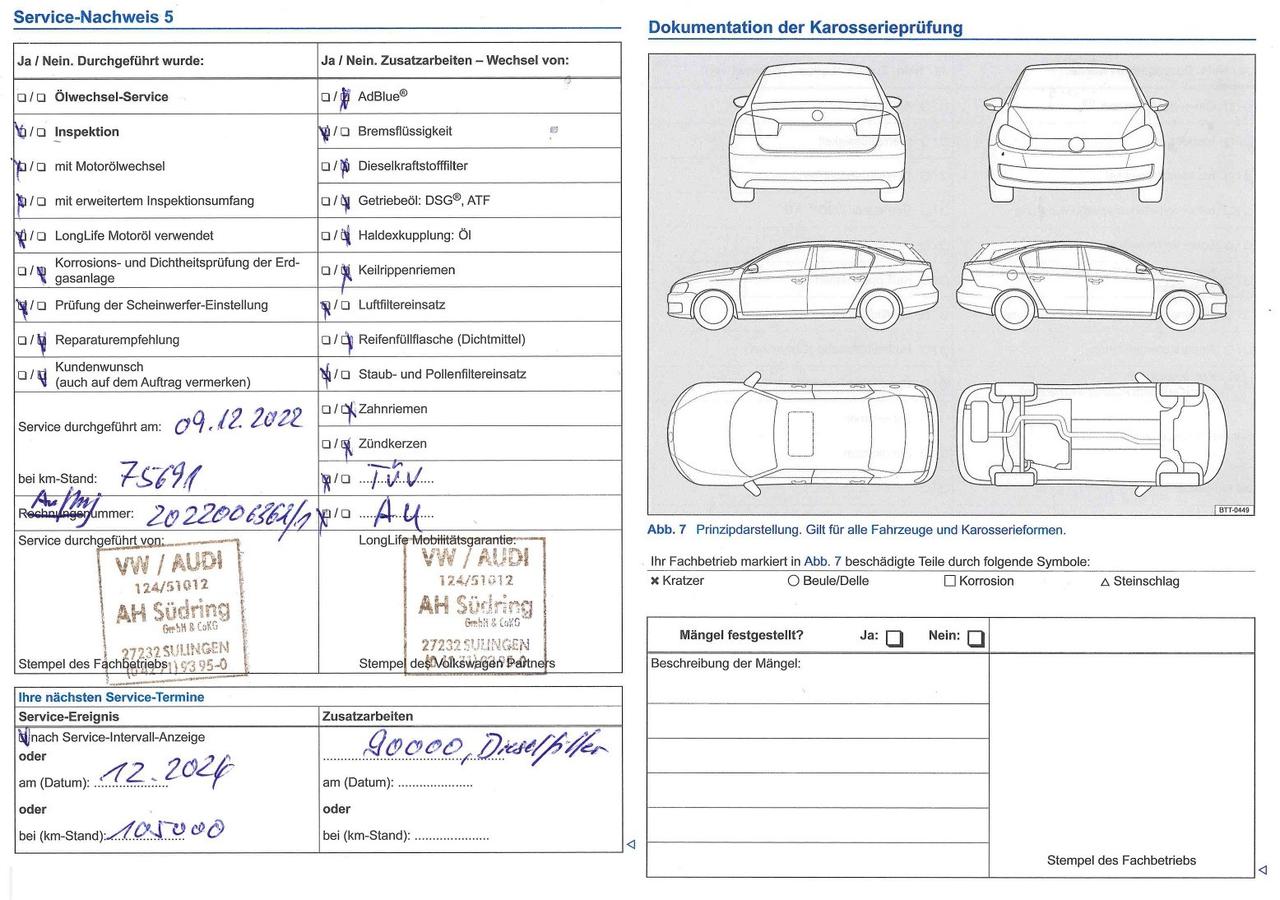 Service-Nachweis 5
Ja / Nein. Durchgeführt wurde:
❏ / ❏ Ölwechsel-Service
❏ / ❏ Inspektion
❏ / ❏ mit Motorölwechsel
❏ / ❏ mit erweitertem Inspektionsumfang
❏ / ❏ LongLife Motoröl verwendet
❏ / ❏ Korrosions- und Dichtheitsprüfung der Erd-
gasanlage
❏ / ❏ Prüfung der Scheinwerfer-Einstellung
❏ / ❏ Reparaturempfehlung
❏ / ❏ Kundenwunsch
(auch auf dem Auftrag vermerken)
Service durchgeführt am: 09.12.2022
bei km-Stand: 75691
Rechnungsnummer:
Service durchgeführt von:
VW / AUDI
124/51012
AH Südring
GmbH & CoKG
27232 SULINGEN
(0 42 71) 93 95-0
Stempel des Fachbetriebs
Ja / Nein. Zusatzarbeiten – Wechsel von:
❏ / ❏ AdBlue®
❏ / ❏ Bremsflüssigkeit
❏ / ❏ Dieselkraftstofffilter
❏ / ❏ Getriebeöl: DSG®, ATF
❏ / ❏ Haldexkupplung: Öl
❏ / ❏ Keilrippenriemen
❏ / ❏ Luftfiltereinsatz
❏ / ❏ Reifenfüllflasche (Dichtmittel)
❏ / ❏ Staub- und Pollenfiltereinsatz
❏ / ❏ Zahnriemen
❏ / ❏ Zündkerzen
❏ / ❏ TÜV
❏ / ❏ AU
LongLife Mobilitätsgarantie:
VW / AUDI
124/51012
AH Südring
GmbH & CoKG
27232 SULINGEN
(0 42 71) 93 95-0
Stempel des Volkswagen Partners
Ihre nächsten Service-Termine
Service-Ereignis
❏ nach Service-Intervall-Anzeige
oder
am (Datum): 12.2024
oder
bei (km-Stand): 105000
Zusatzarbeiten
90000, Dieselfilter
am (Datum): ....................
oder
bei (km-Stand): ....................
Dokumentation der Karosserieprüfung
BTT-0449
Abb. 7 Prinzipdarstellung. Gilt für alle Fahrzeuge und Karosserieformen.
Ihr Fachbetrieb markiert in Abb. 7 beschädigte Teile durch folgende Symbole:
✖ Kratzer ○ Beule/Delle □ Korrosion △ Steinschlag
Mängel festgestellt? Ja: ❏ Nein: ❏
Beschreibung der Mängel:
Stempel des Fachbetriebs